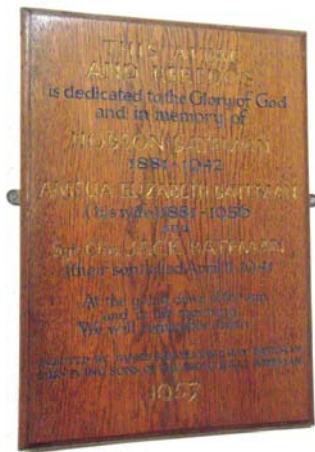 THIS ALTAR
AND REREDOS
is dedicated to the Glory of God
and in memory of
HOBSON BATEMAN
1881-1942
AMELIA ELIZABETH BATEMAN
(his wife) 1881-1956
and
JACK BATEMAN
(their son) killed April 1941
At the going down of the sun
and in the morning
We will remember them
1957